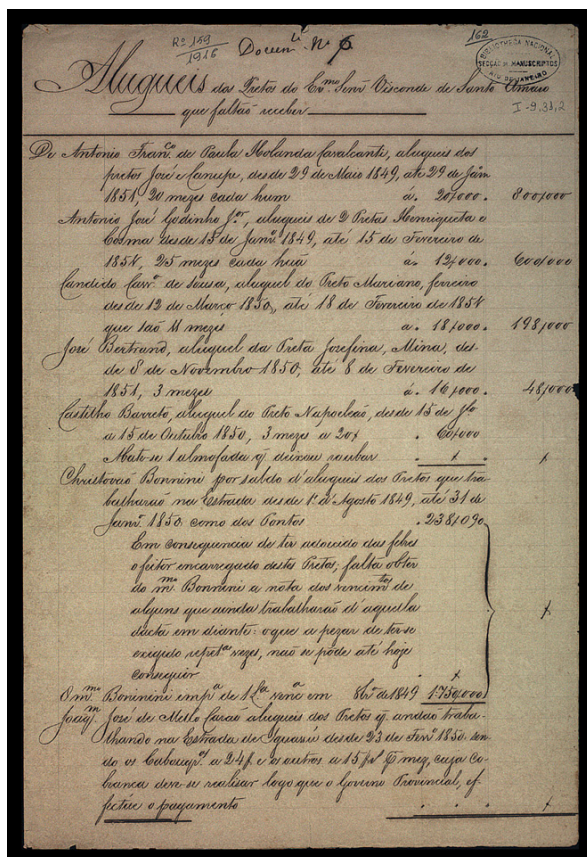 Rº 159
1916
Docum.to Nº 6
162
BIBLIOTHECA NACIONAL
SECÇÃO DE MANUSCRIPTOS
RIO DE JANEIRO
I-9,33,2
Alugueis dos Pretos do Ex.mo Senr. Visconde de Santo Amaro
que faltão receber
De Antonio Fran.co de Paula Holanda Cavalcanti, alugueis dos
pretos José e Canupe, desde 29 de Maio 1849, até 29 de Jan.
1851, 20 mezes cada hum á. 20$000. 800$000
Antonio José Godinho J.or, alugueis de 2 Pretas Henriqueta e
Cosma desde 15 de Janr.º 1849, até 15 de Fevereiro de
1851, 25 mezes cada huã á. 12$000. 600$000
Candido Carv.º de Sousa, aluguel do Preto Mariano, ferreiro
desde 12 de Março 1850, até 18 de Fevereiro de 1851
que são 11 mezes a. 18$000. 198$000
José Bertrand, aluguel da Preta Josefina, Mina, des-
de 8 de Novembro 1850, até 8 de Fevereiro de
1851, 3 mezes á. 16$000. 48$000
Castilho Barreto, aluguel do Preto Napoleão, desde 15 de Jlº
a 15 de Outubro 1850, 3 mezes a 20$ 60$000
Abate-se 1 almofada q deixou roubar $ $
Christovão Bonnini por saldo d'alugueis dos Pretos que tra-
balharão na Estrada desde 1º d'Agosto 1849, até 31 de
Janr.º 1850 como dos Pontos 238$090
Em consequencia de ter adoecido das febres
o feitor encarregado destes Pretos, falta obter
do m.mo Bonnini a nota dos vencim.tos de
alguns que ainda trabalharão d'aquella
dacta em diante: o que a pezar de ter-se
exigido repet.as vezes, não se pôde até hoje
conseguir $ $
O m.mo Boninini emp.a de 1 L.a venc.a em 8br.º de 1849 1.750$000
Joaq.m José de Mello Cavão alugueis dos Pretos q. andão traba-
lhando na Estrada de Iguassú desde 23 de Fevr.º 1850 sen-
do os Cabouq.os a 24$ e os outros a 15$ mez, cuja co-
brança deve-se realisar logo que o Governo Provincial, ef-
fectue o pagamento $